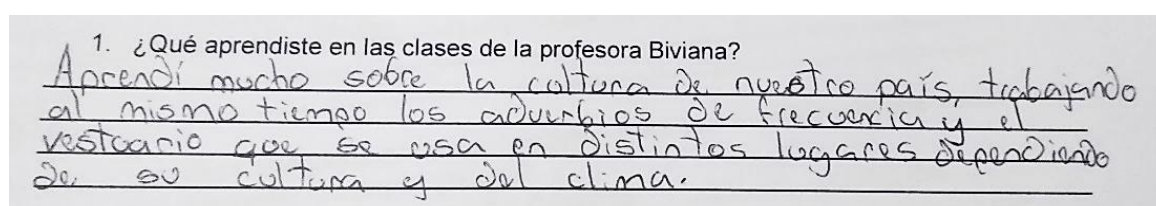 1. ¿Qué aprendiste en las clases de la profesora Biviana?
Aprendí mucho sobre la cultura de nuestro país, trabajando
al mismo tiempo los adverbios de frecuencia y el
vestuario que se usa en distintos lugares dependiendo
de su cultura y del clima.